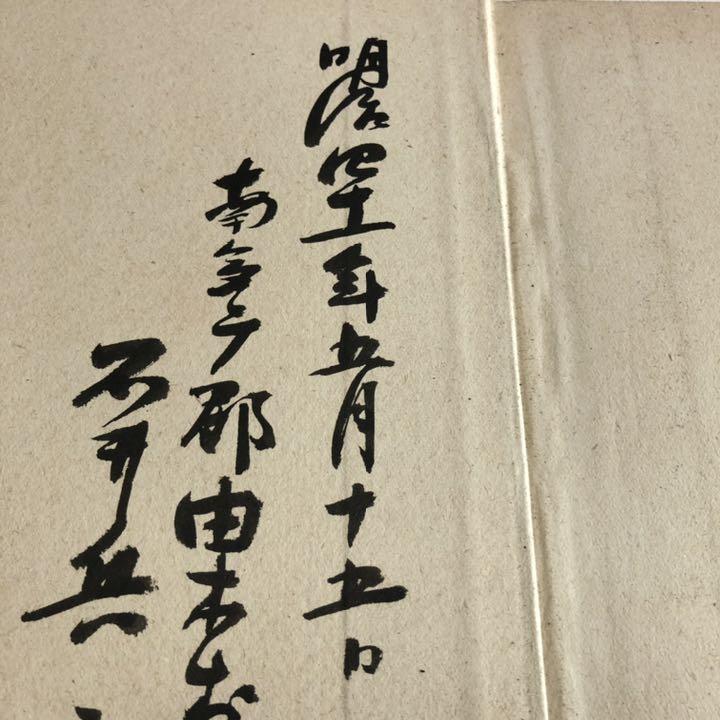 明治四十一年五月十五日
南多摩郡由木村
石井兵